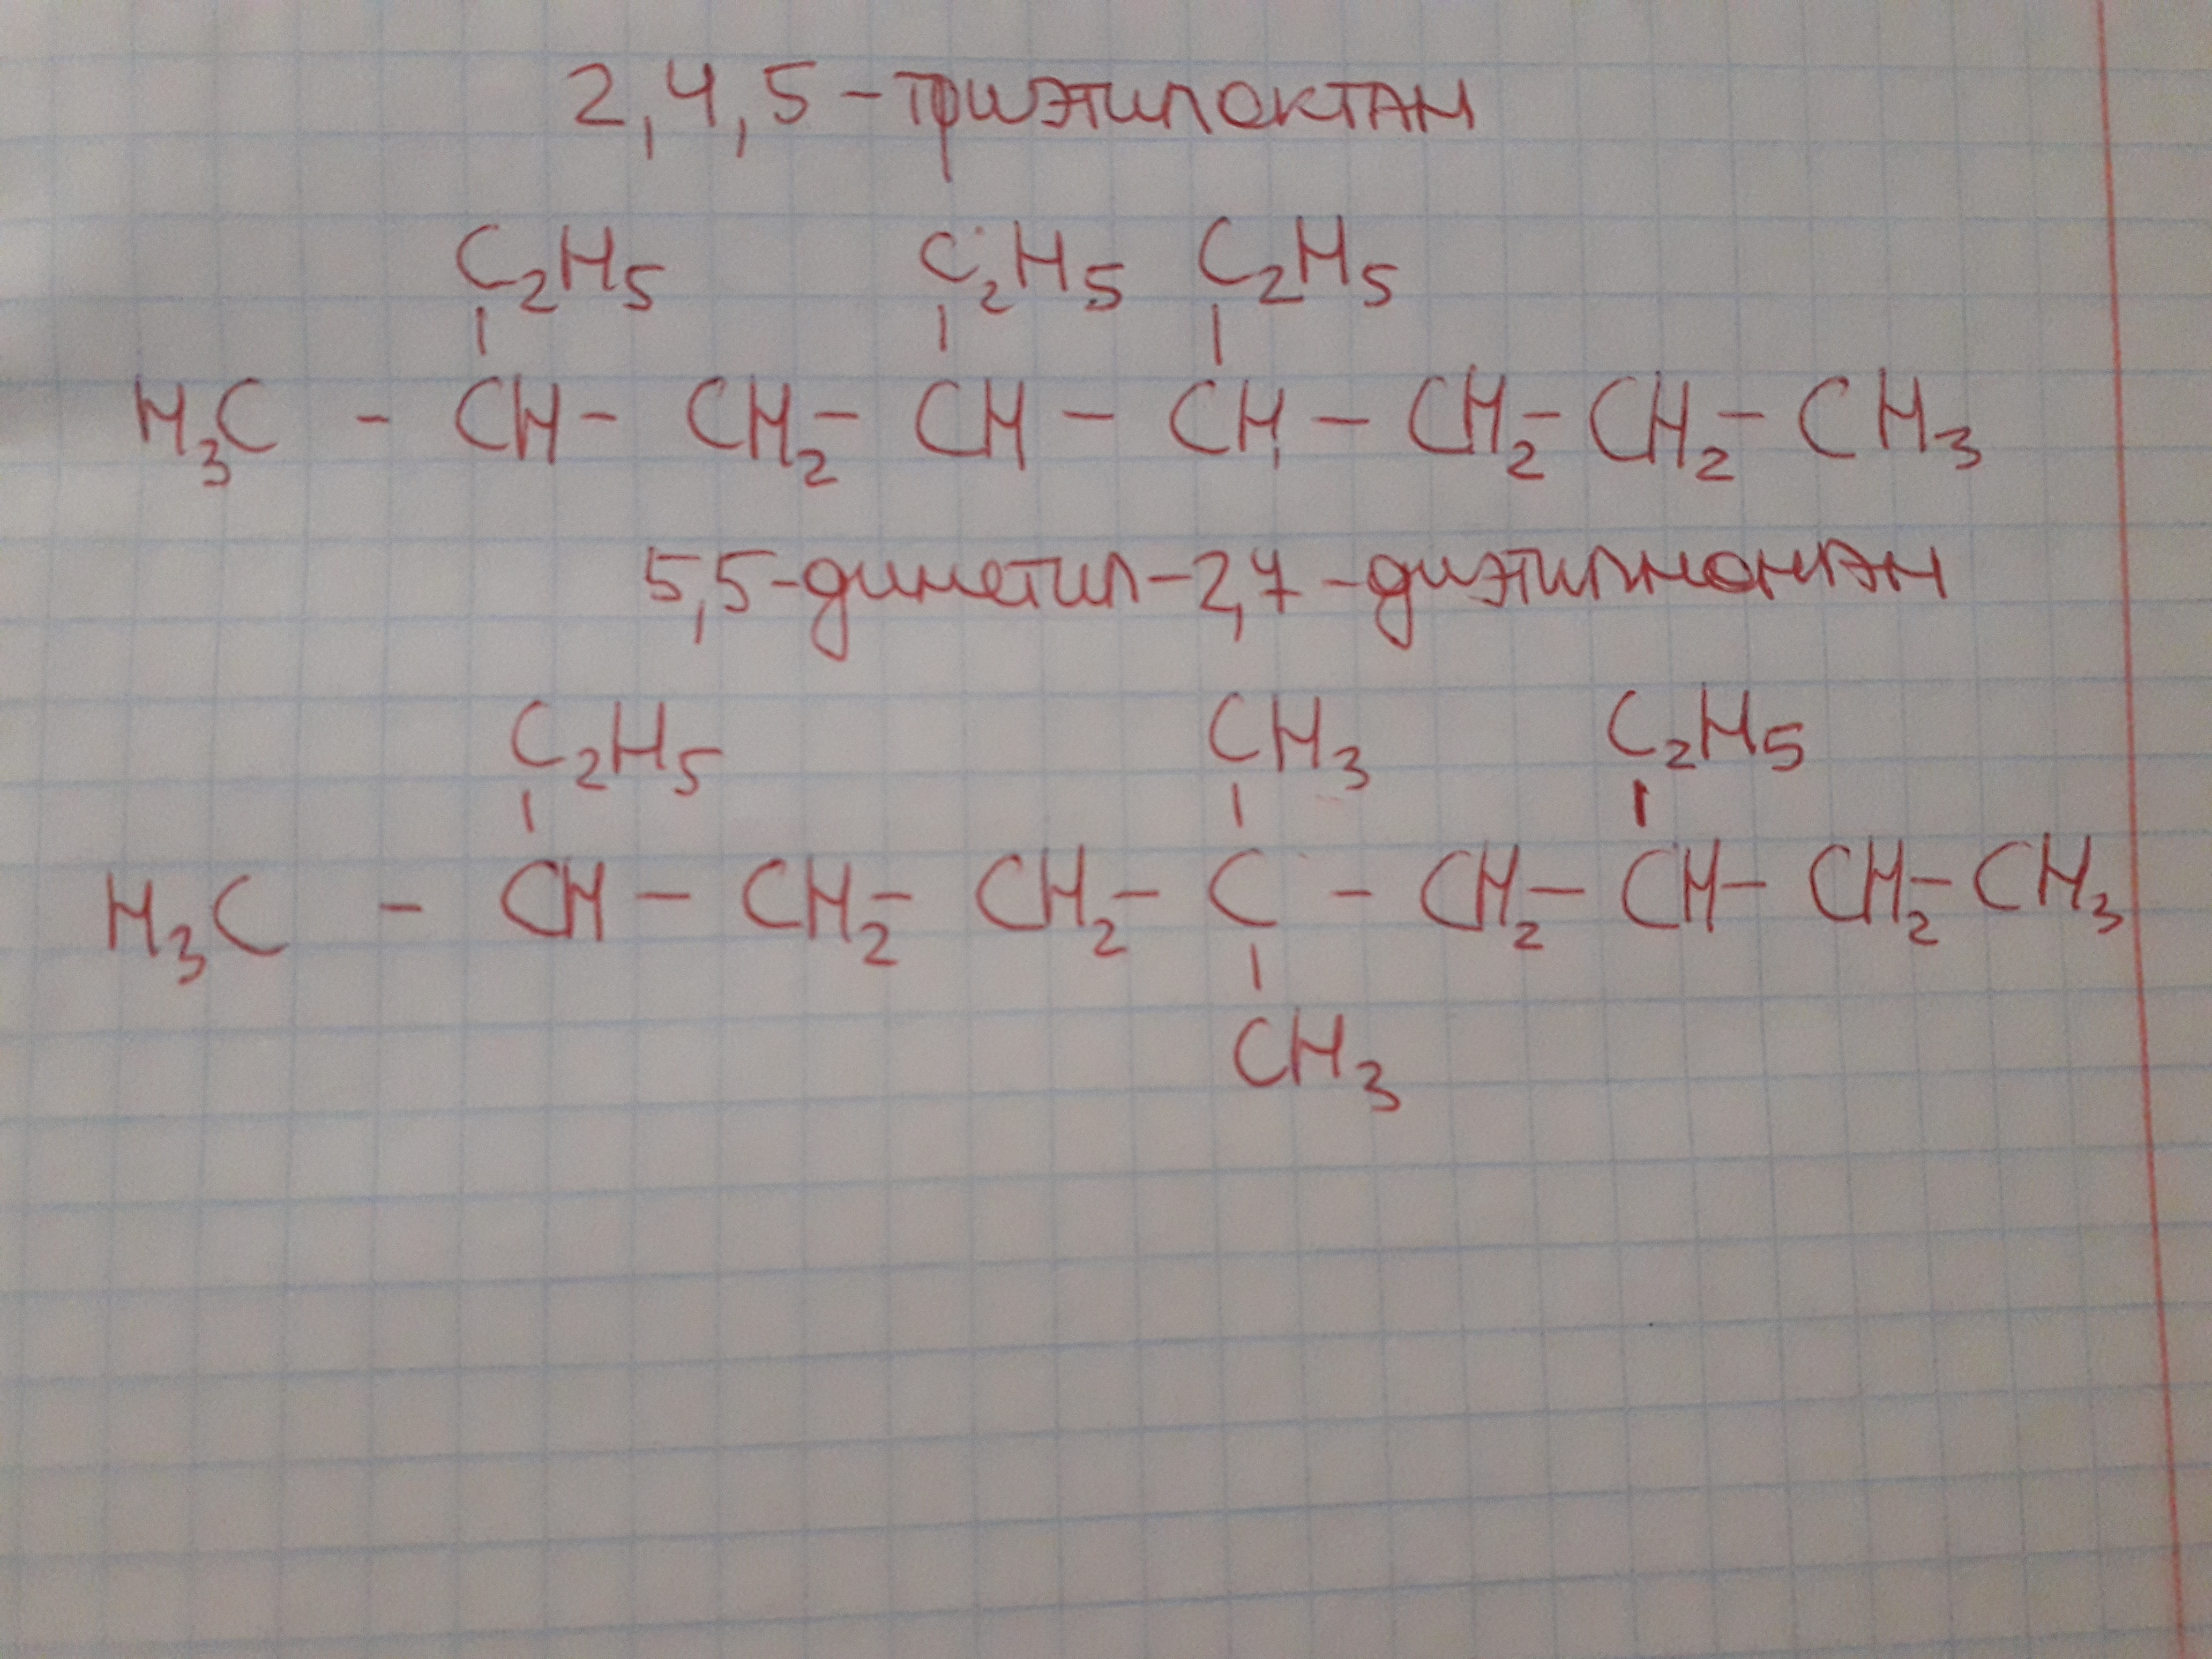 2,4,5-триэтилоктан
C₂H₅ C₂H₅ C₂H₅
H₃C - CH - CH₂ - CH - CH - CH₂ - CH₂ - CH₃
5,5-диметил-2,7-диэтилнонан
C₂H₅ CH₃ C₂H₅
H₃C - CH - CH₂ - CH₂ - C - CH₂ - CH - CH₂ - CH₃
CH₃